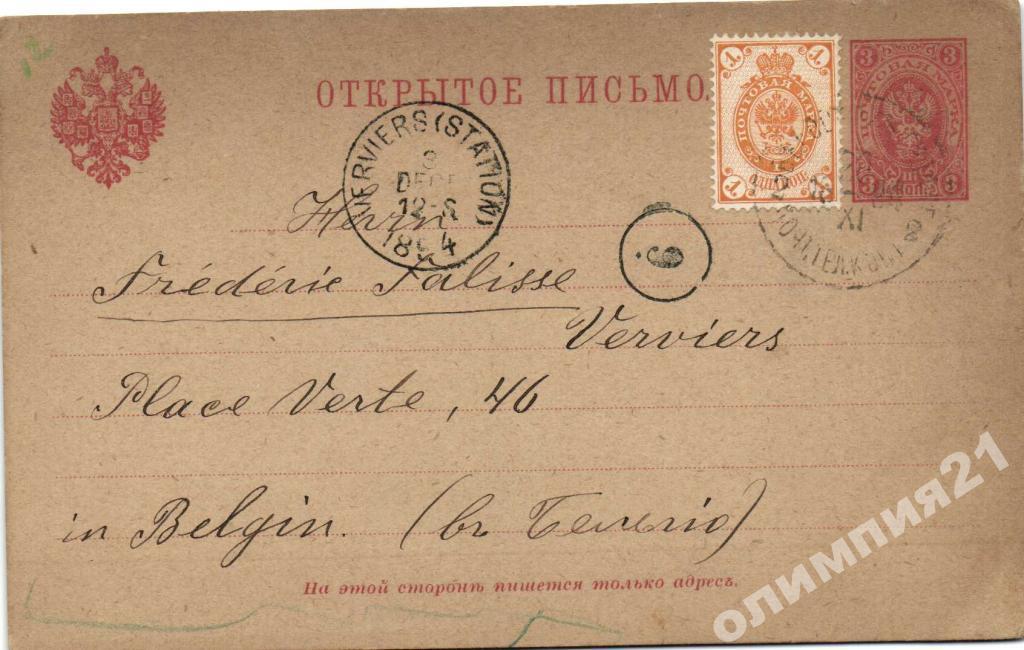 ОТКРЫТОЕ ПИСЬМО
1 1
ПОЧТОВАЯ МАРКА
1 1
3 3
ПОЧТОВАЯ МАРКА
3 3
VERVIERS (STATION)
3
DECE
12-S
1894
XI
2
6
Herrn
Frédéric Falisse
Verviers
Place Verte, 46
in Belgin. (въ Бельгію)
На этой сторонѣ пишется только адресъ.
олимпия21